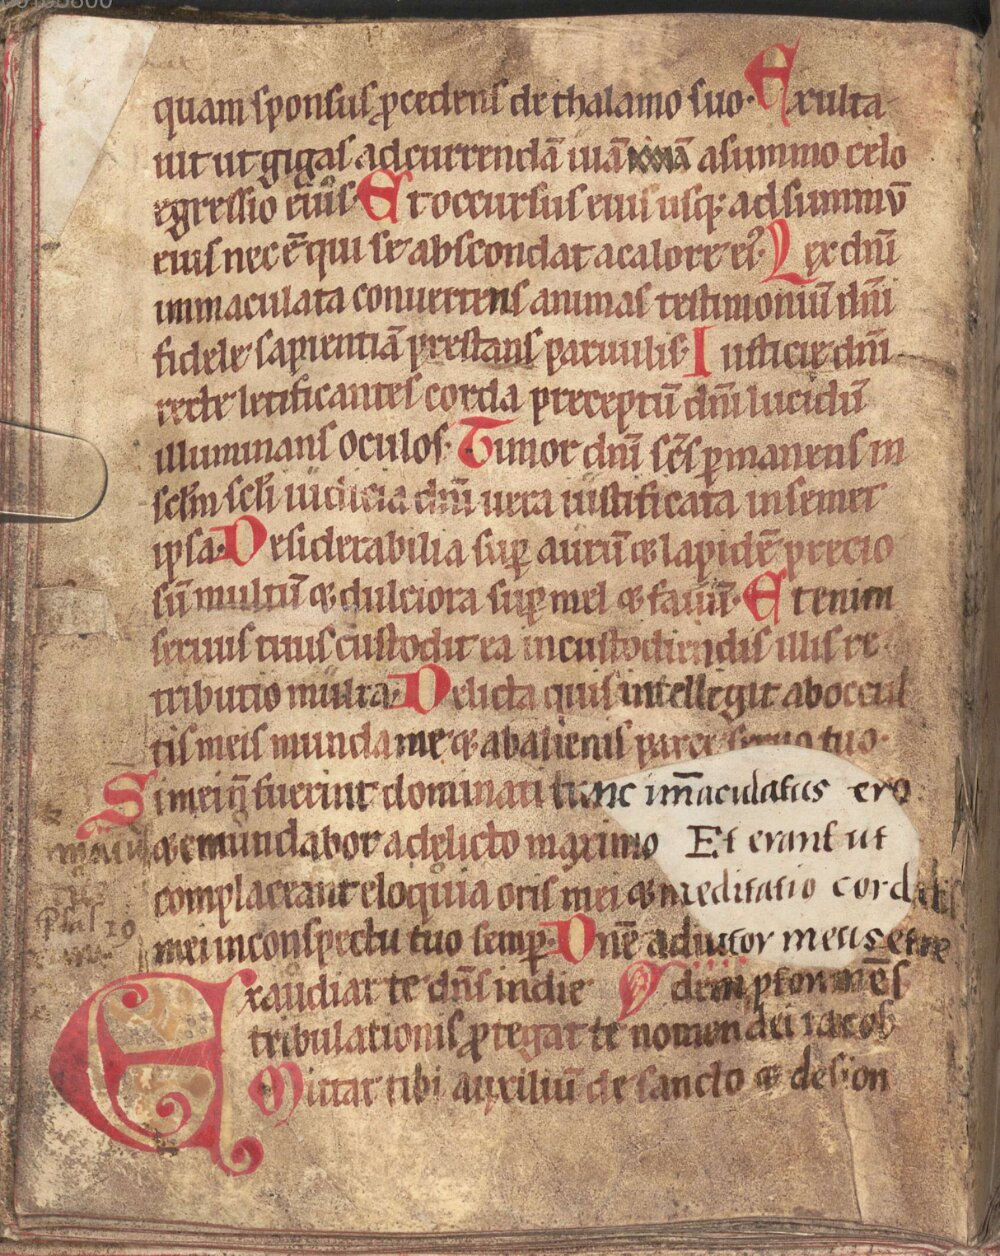 quam sponsus ꝓcedens de thalamo suo· Exulta
uit ut gigas ad currendā uiā asummo celo
egressio eius· Et occursus eius usqꝫ ad summū
eius nec ē qui se abscondat a calore ei᾿ Lex dn̄i
immaculata conuertens animas testimoniū dn̄i
fidele sapientiā prestans paruulis· Iusticie dn̄i
recte letificantes corda preceptū dn̄i lucidū
illuminans oculos· Timor dn̄i sc̄s ꝑmanens in
sc̄lm sc̄li iudicia dn̄i uera iustificata in semet
ipsa· Desiderabilia suꝑ aurū & lapidē precio
sū multū & dulciora suꝑ mel & fauū· Etenim
seruus tuus custodit ea in custodiendis illis re
tributio multa· Delicta quis intellegit ab occul
tis meis munda me & ab alienis parce seruo tuo·
Si mei n̄ fuerint dominati tunc im̄aculatus ero
& emundabor a delicto maximo Et erant ut
complaceant eloquia oris mei & meditatio cordis
mei in conspectu tuo semꝑ· Dn̄e adiutor meus et re
Psal 19
Exaudiat te dn̄s in die demptor mēs
tribulationis ꝓtegat te nomen dei iacob
Mittat tibi auxiliū de sancto & de sion